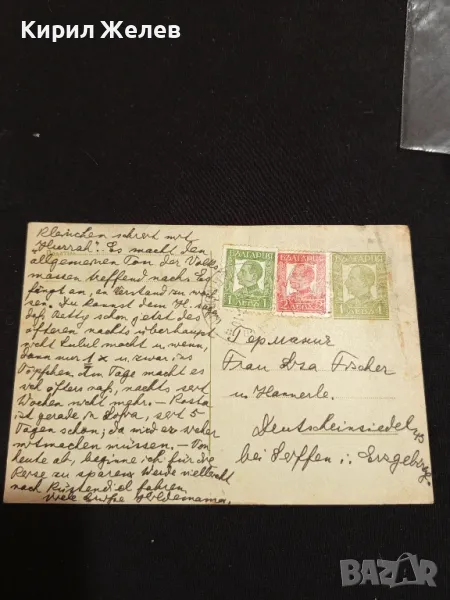 Кирил Желев
Kleinchen schreit mit
"Hurrah". Es macht den
allgemeinen Ton der Volks
massen treffend nach. Es
fängt an, in Verstand zu
sen. Du kannst dem
daß Hetty schon jetzt des
öfteren nachts überhaupt
nicht macht u. wenn,
dann nur 1 x u. zwar ins
Töpfchen. Am Tage macht es
sich öfters naß, nachts seit
Wochen nicht mehr. - Kosta
ist gerade in Sofia, seit 5
Tagen schon; da wird er wieder
mitmachen müssen. - Von
heute ab, beginne ich für die
Reise zu sparen. Werde vielleicht
nach fahren.
Viele Grüße
БЪЛГАРИЯ БЪЛГАРИЯ БЪЛГАРИЯ
1 ЛЕВЪ 1
ЛЕВЪ
Германия
Frau Fischer
u. Hannerle.
Deutscheinsiedel
bei Seiffen i. Erzgebirge
BAZAR.BG